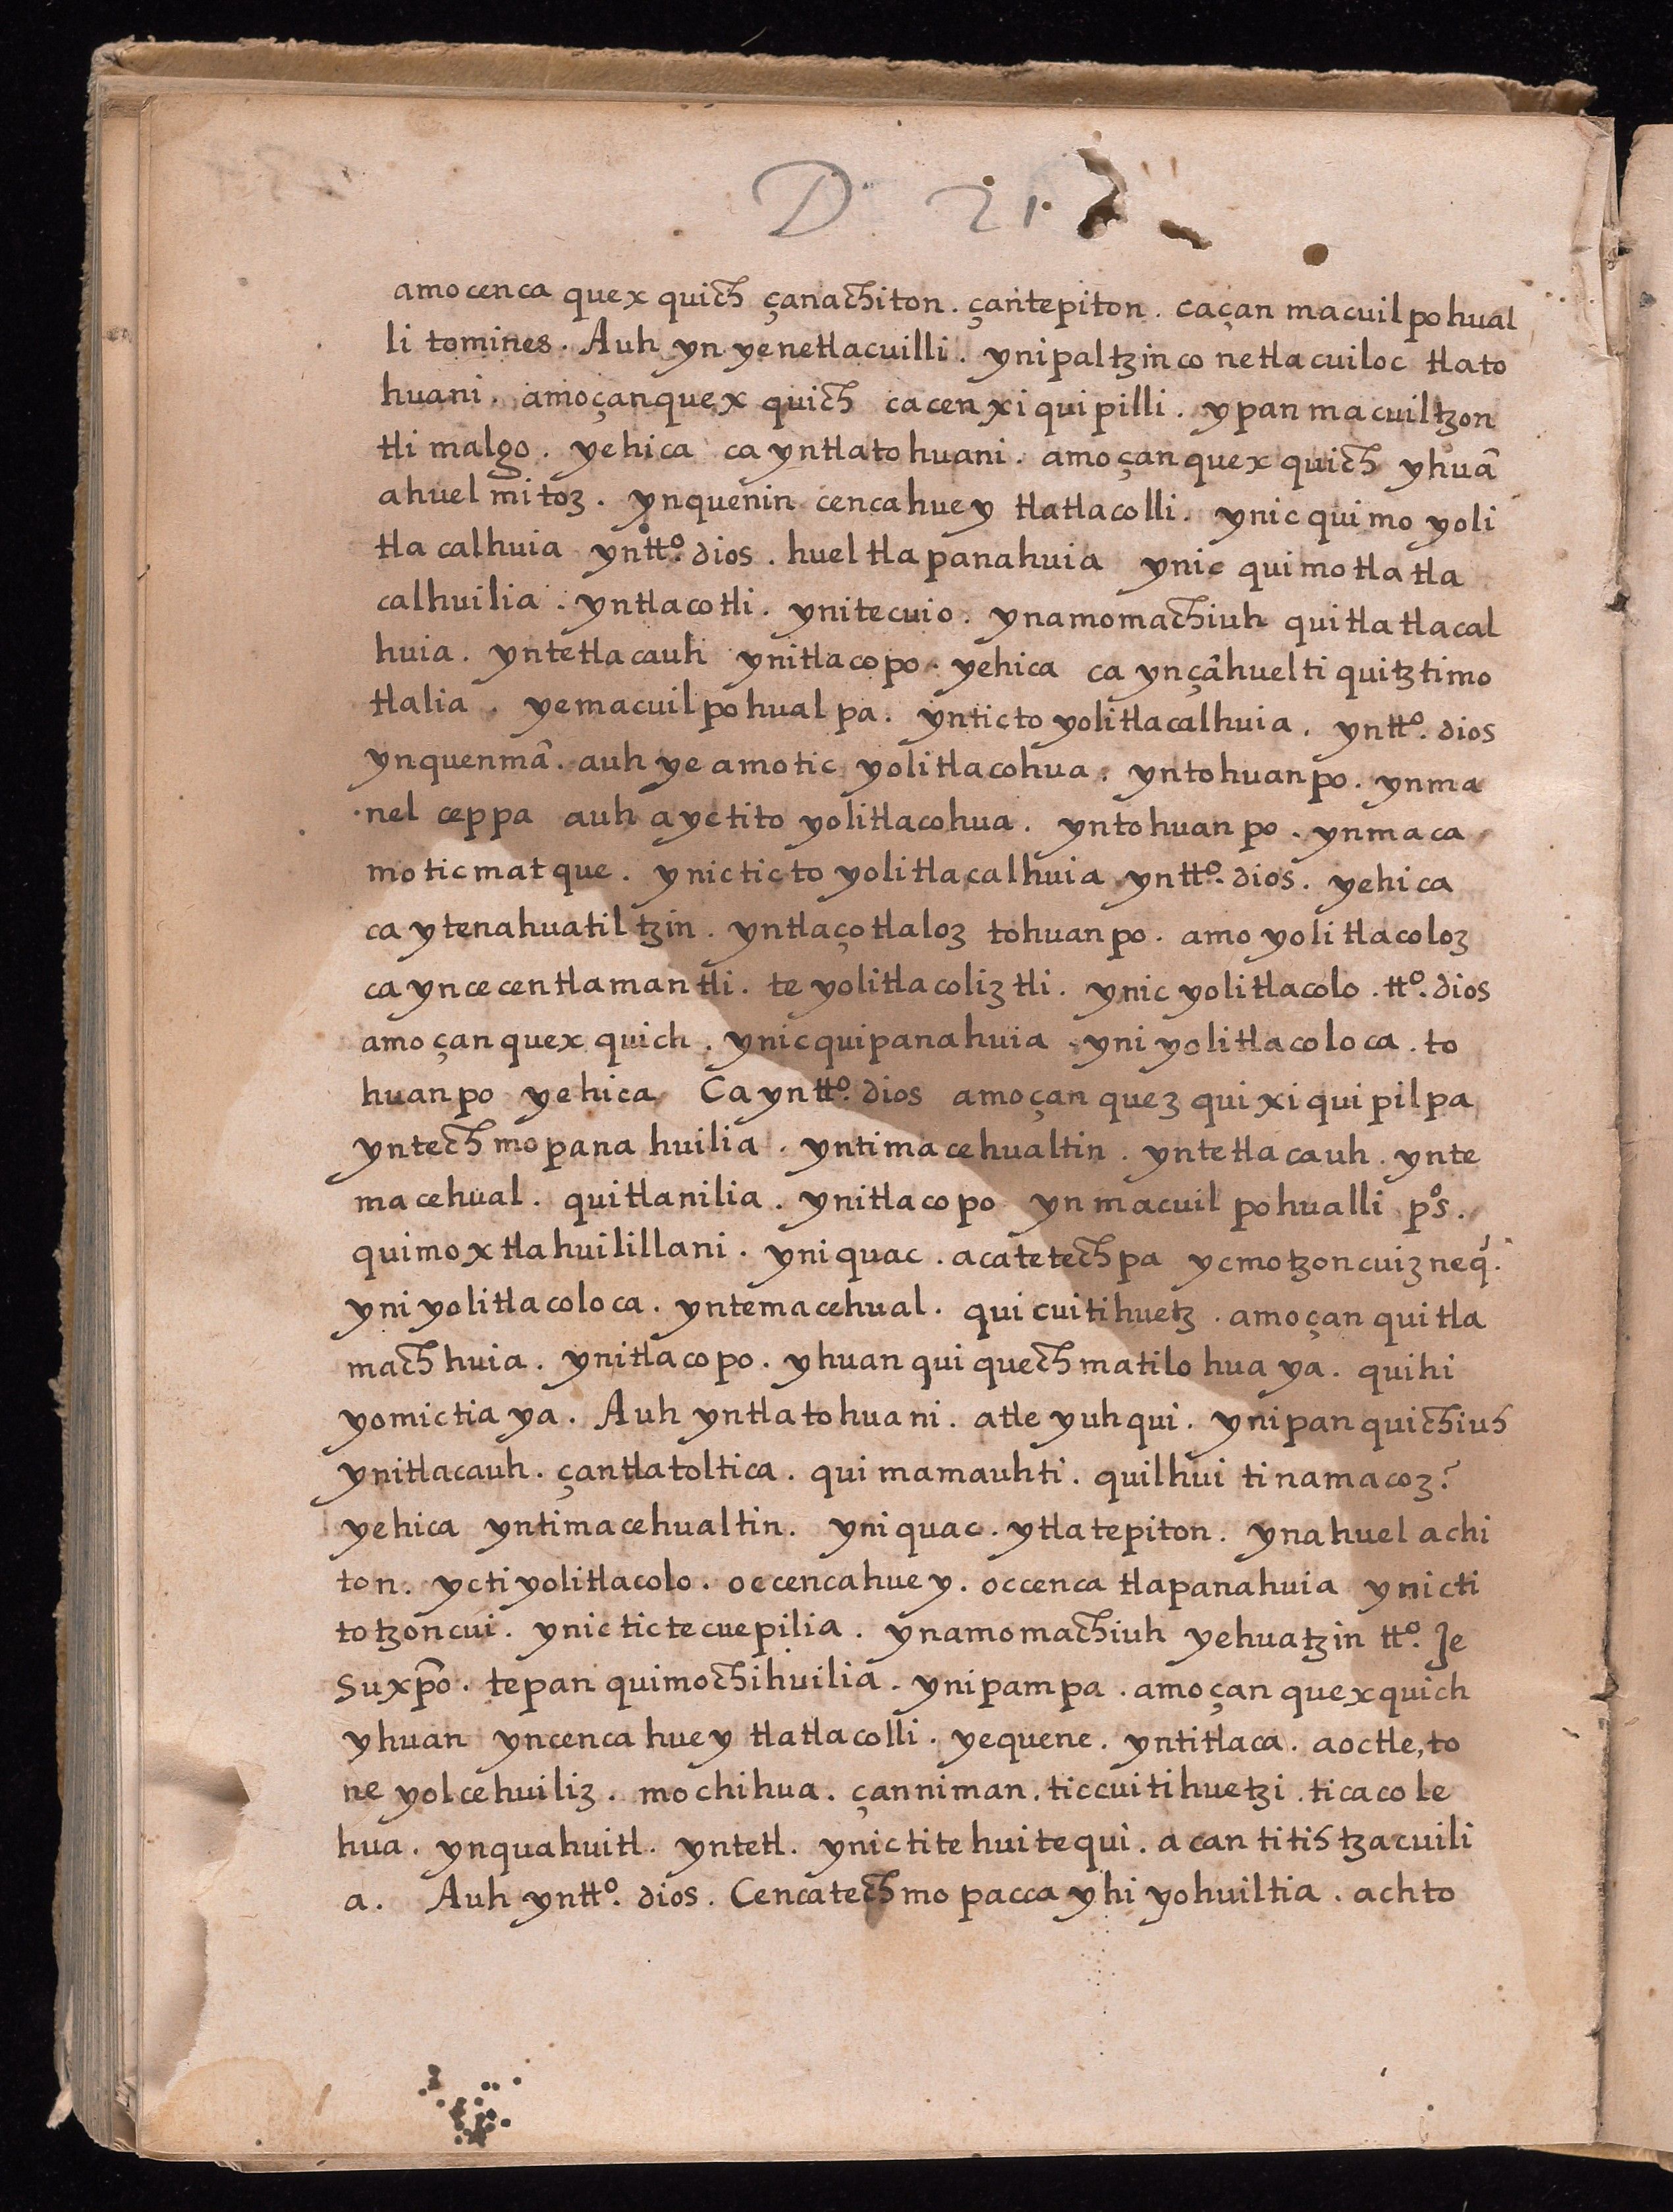 D. 21
amo cenca quex quich çanachiton. çantepiton. caçan macuil pohual
li tomines. Auh yn yenetlacuilli. ynipaltzinco netlacuiloc tlato
huani. amoçanquex quich cacen xiquipilli. ypan macuiltzon
tli malgo. yehica ca yntlatohuani. amoçan quex quich yhuā
ahuel mitoz. ynquenin cencahuey tlatlacolli. ynic quimo yoli
tla calhuia yntto. dios. hueltlapanahuia ynic quimotlatla
calhuilia. yntlacotli. ynitecuio. ynamomachiuh quitlatlacal
huia. yntetlacauh ynitlacopo. yehica ca ynçāhuelti quitztimo
tlalia. yemacuilpohualpa. ynticto yolitlacalhuia. yntto. dios
ynquenmā. auh ye amotic yolitlacohua. yntohuanpo. ynma
nel ceppa auh ayctito yolitlacohua. yntohuanpo. ynmaca
moticmatque. ynicticto yolitlacalhuia yntto. dios. yehica
ca ytenahuatiltzin. yntlaçotlaloz tohuanpo. amo yolitlacoloz
ca yncecentlamantli. te yolitlacoliztli. ynic yolitlacolo. tto. dios
amoçan quex quich. ynicquipanahuia. yni yolitlacoloca. to
huanpo yehica Ca yntto. dios amoçan quez quixiquipilpa
yntechmopanahuilia. yntimacehualtin. yntetlacauh. ynte
macehual. quitlanilia. ynitlacopo ynmacuil pohualli pos.
quimoxtlahuilillani. yniquac. acatetechpa ycmotzoncuizneqū.
yni yolitlacoloca. yntemacehual. quicuitihuetz. amoçan quitla
machhuia. ynitlacopo. yhuan qui quechmatilohua ya. quihi
yomictia ya. Auh yntlatohuani. atle yuhqui. ynipan quichiuh
ynitlacauh. çantlatoltica. qui mamauhti. quilhui tinamacoz?
yehica yntimacehualtin. yniquac. ytlatepiton. ynahuel achi
ton. ycti yolitlacolo. occencahuey. occenca tlapanahuia ynicti
totzoncui. ynictictecuepilia. ynamomachiuh yehuatzin tto. Je
suxp̄o. tepan quimochihuilia. ynipampa. amoçan quexquich
yhuan yncenca huey tlatlacolli. yequene. yntitlaca. aoctle, to
ne yolcehuiliz. mochihua. çanniman. ticcuitihuetzi. ticacole
hua. ynquahuitl. yntetl. ynictitehuitequi. acan titihtzacuili
a. Auh yntto. dios. Cencatechmo pacca yhi yohuiltia. achto